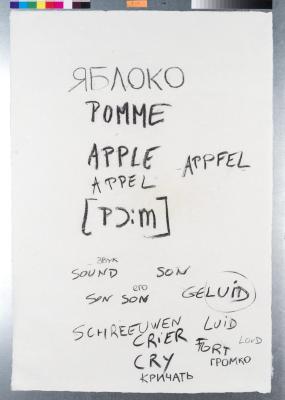 ЯБЛОКО
POMME
APPLE APPFEL
APPEL
[pɔ:m]
ЗВУК
SOUND SON
его
SON SON GELUID
SCHREEUWEN LUID
CRIER FORT LOUD
CRY ГРОМКО
КРИЧАТЬ